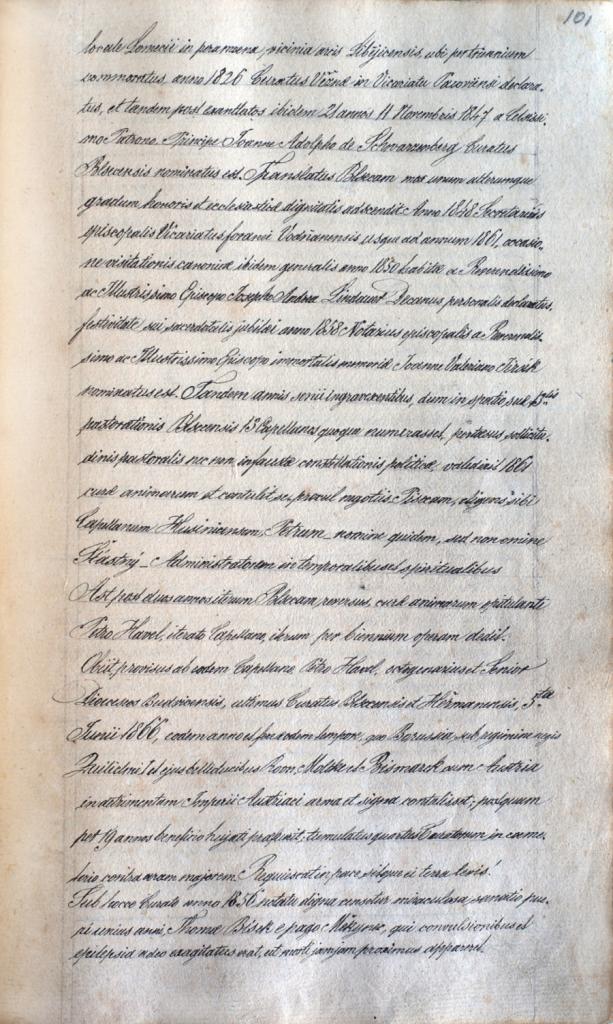 101
locale Lomecii in peramoena vicinia arcis Libějicensis, ubi per triennium
commoratus, anno 1826 Curatus Vězná in Vicariatu Pacoviensi declara-
tus, et tandem post exantlatos ibidem 21 annos 11 Novembris 1847 a Celsissi-
mo Patrono Principe Joanne Adolpho de Schwarzenberg Curatus
Blscensis nominatus est. Translatus mox unum alterumque
gradum honoris et ecclesiasticae dignitatis adscendit. Anno 1848 Secretarius
episcopalis Vicariatus foranei Vodnianensis usque ad annum 1861, occasio-
ne visitationis canonicae ibidem generalis anno 1850 habitae a Reverendissimo
ac Illustrissimo Episcopo Josepho Andrea Lindauer Decanus personalis declaratus,
festivitate sui sacerdotalis jubilaei anno 1858 Notarius episcopalis a Reverendis-
simo ac Illustrissimo Episcopo immortalis memoriae Joanne Valeriano Jirsík
nominatus est. Tandem annis senii ingravescentibus, dum in spatio suae
pastorationis 13 Capellanos quoque numerasset, pertaesus sollicitu-
dinis pastoralis nec non infaustae constellationis politicae, valedixit 1861
curae animarum et contulit se procul negotiis Piscam, eligens sibi
Capellanum Husinicensem, Petrum – nomine quidem, sed non omine
Šťastný – Administratorem in temporalibus et spiritualibus
Ast post duos annos iterum reversus, curae animarum opitulante
Petro Havel, iterato Capellano, iterum per biennium operam dedit.
Obiit provisus ab eodem Capellano Petro Havel, octogenarius et Senior
Dioeceseos Budvicensis, ultimus Curatus et Heřmanensis, 5ta
Junii 1866, eodem anno et fere eodem tempore, quo Borussia, sub regimine regis
Guilielmi I et ejus belliducibus Roon, Moltke et Bismarck cum Austria
in detrimentum Imperii Austriaci arma et signa contulisset; postquam
per 19 annos beneficio hujati praefuit; tumulatus quartus Curatorum in coeme-
terio contra aram majorem. Requiescat in pace sitque ei terra levis!
Sub hocce Curato anno 1856 notatu digna censetur miraculosa sanatio pue-
ri unius anni, Thomae Bísek e pago qui convulsionibus et
epilepsia adeo exagitatus erat, ut morti jamjam proximus appareret.